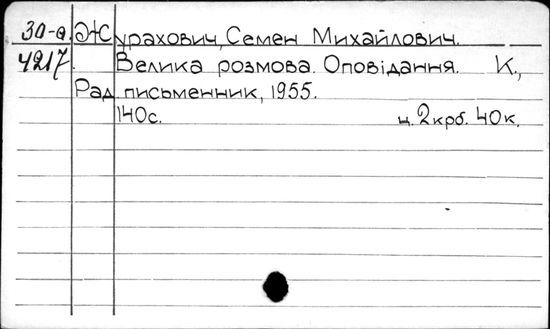 30-а. Журахович, Семен Михайлович.
4217. Велика розмова. Оповідання. К.,
Рад. письменник, 1955.
140с. ц. 2крб. 40к.